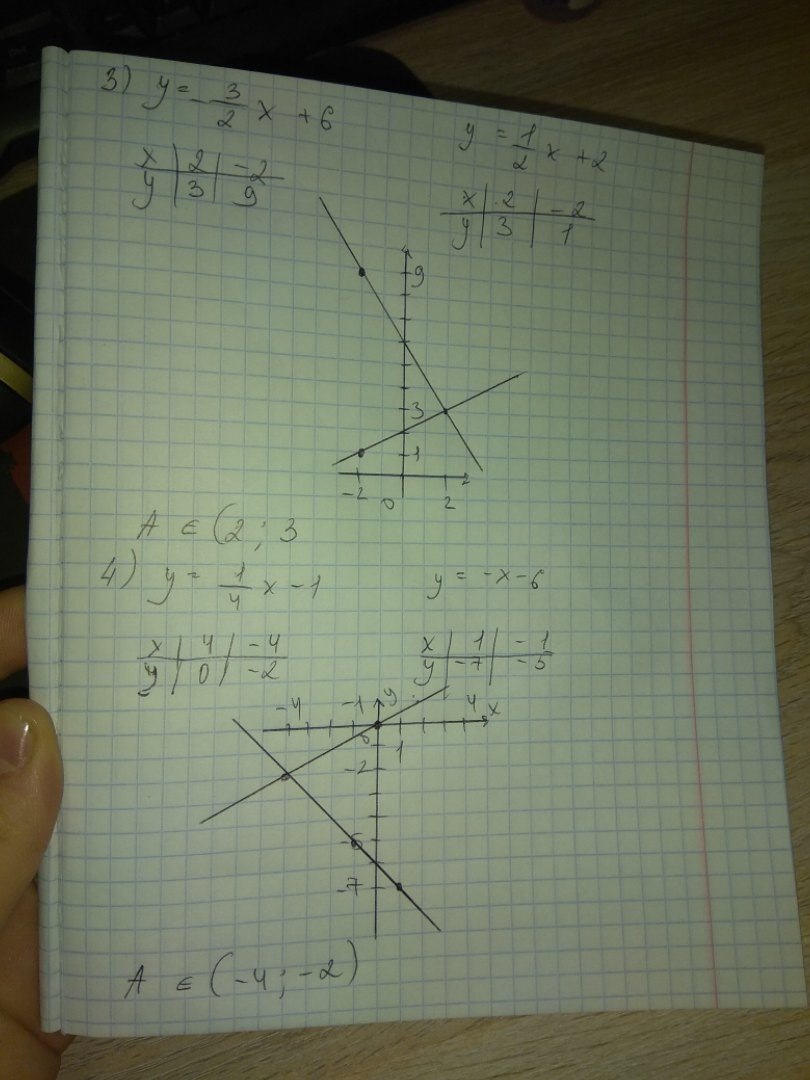 3) y = -3/2 x + 6
y = 1/2 x + 2
x | 2 | -2
y | 3 | 9
x | 2 | -2
y | 3 | 1
9
3
1
-2 0 2
A ∈ (2 ; 3
4) y = 1/4 x - 1
y = -x - 6
x | 4 | -4
y | 0 | -2
x | 1 | -1
y | -7 | -5
-4 -1 y 4 x
0 1
-2
-7
A ∈ (-4 ; -2)